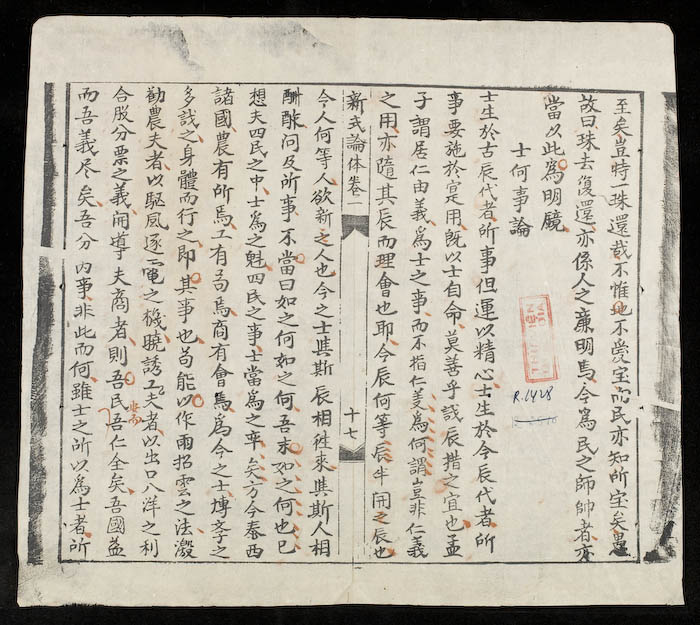 至矣豈特一珠還哉不惟地不愛宝而民亦知所宝矣愚
故曰珠去復還亦係人之廉明焉今為民之師帥者亦
當以此為明鏡
士何事論
士生於古辰代者所事但運以精心士生於今辰代者所
事要施於寔用既以士自命莫善乎哉辰措之宜也孟
子謂居仁由義為士之事而不指仁義為何謂豈非仁義
之用亦隨其辰而理會也耶今辰何等辰半開之辰也
新式論体卷一
十七
今人何等人欲新之人也今之士與斯辰相徃來與斯人相
酬酢問及所事不當曰如之何如之何吾末如之何也已
想夫四民之中士為之魁四民之事士當為之率矣方今泰西
諸國農有所焉工有局焉商有會焉為今之士慱文字之
多哉之身體而行之即其事也苟能以作雨招雲之法激
勸農夫者以駆風逐電之機曉誘工夫者以出口八洋之利
合股分票之義開導夫商者則吾民吾仁全矣吾國益
而吾義尽矣吾分內事非此而何雖士之所以為士者所
R.1428